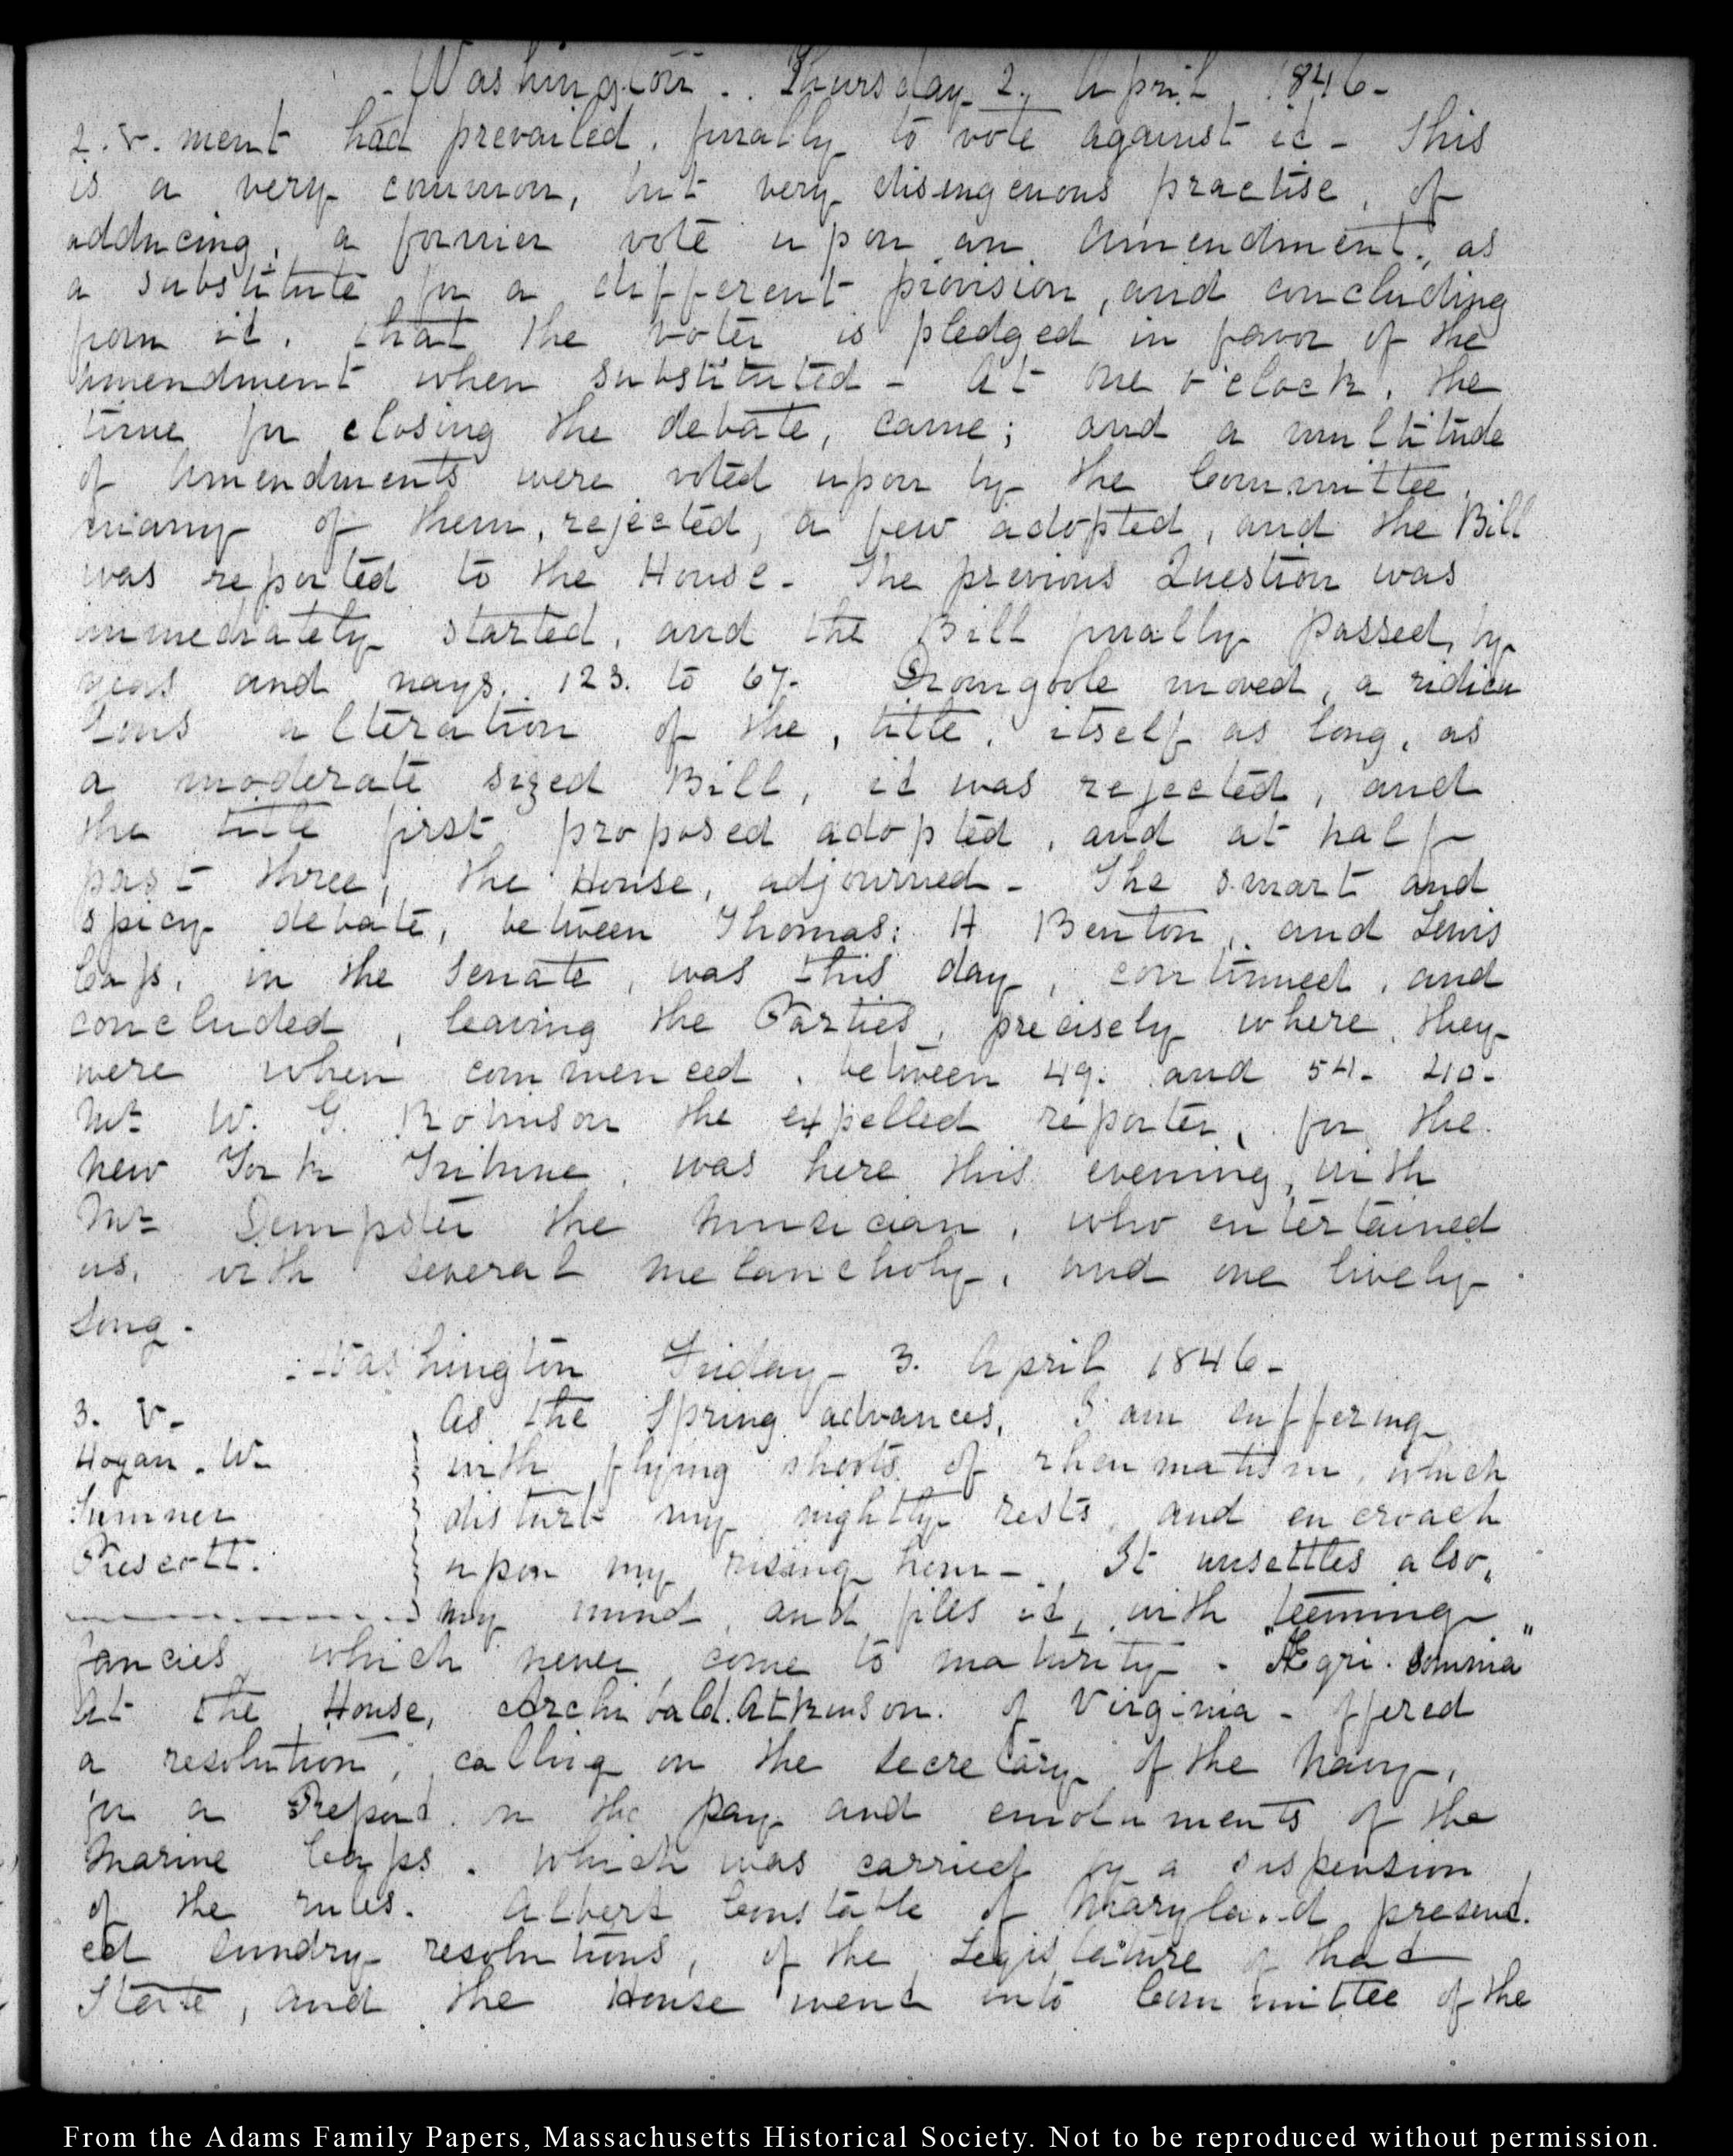 Washington. Thursday 2. April 1846-
2. V. ment had prevailed, finally to vote against it - This
is a very common, but very disingenuous practise, of
adducing, a former vote upon an Amendment, as
a substitute for a different provision, and concluding
from it, that the voter is pledged in favor of the
Amendment when substituted - At one o'clock, the
time for closing the debate, came; and a multitude
of Amendments were voted upon by the Committee,
many of them, rejected, a few adopted, and the Bill
was reported to the House - The previous Question was
immediately started, and the Bill finally passed, by
yeas and nays. 123. to 67. Dromgoole moved, a ridicu
lous alteration of the, title, itself as long, as
a moderate sized Bill, it was rejected, and
the title first proposed adopted, and at half
past three, the House, adjourned - The smart and
spicy debate, between Thomas: H Benton, and Lewis
Cass, in the Senate, was this day, continued, and
concluded, leaving the Parties, precisely where, they
were when commenced, between 49. and 54- 40-
Mr W. G. Robinson the expelled reporter, for the
New York Tribune, was here this evening, with
Mr Dempster the Musician, who entertained
us, with several melancholy, and one lively
song -
Washington Friday - 3. April 1846-
3. V- As the Spring advances, I am suffering
Hogan. W- with flying shoots of rheumatism, which
Sumner disturb my nightly rests, and encroach
Prescott. upon my rising hour - It unsettles also,
my mind, and fills it, with teeming
fancies, which never come to maturity - "Ægri somnia"
At the House, Archibald Atkinson. of Virginia - offered
a resolution, calling on the Secretary of the Navy,
for a Report on the pay and emoluments of the
Marine Corps. which was carried by a suspension
of the rules. Albert Constable of Maryland present.
ed sundry resolutions, of the Legislature of that
State, and the House went into Committee of the
From the Adams Family Papers, Massachusetts Historical Society. Not to be reproduced without permission.